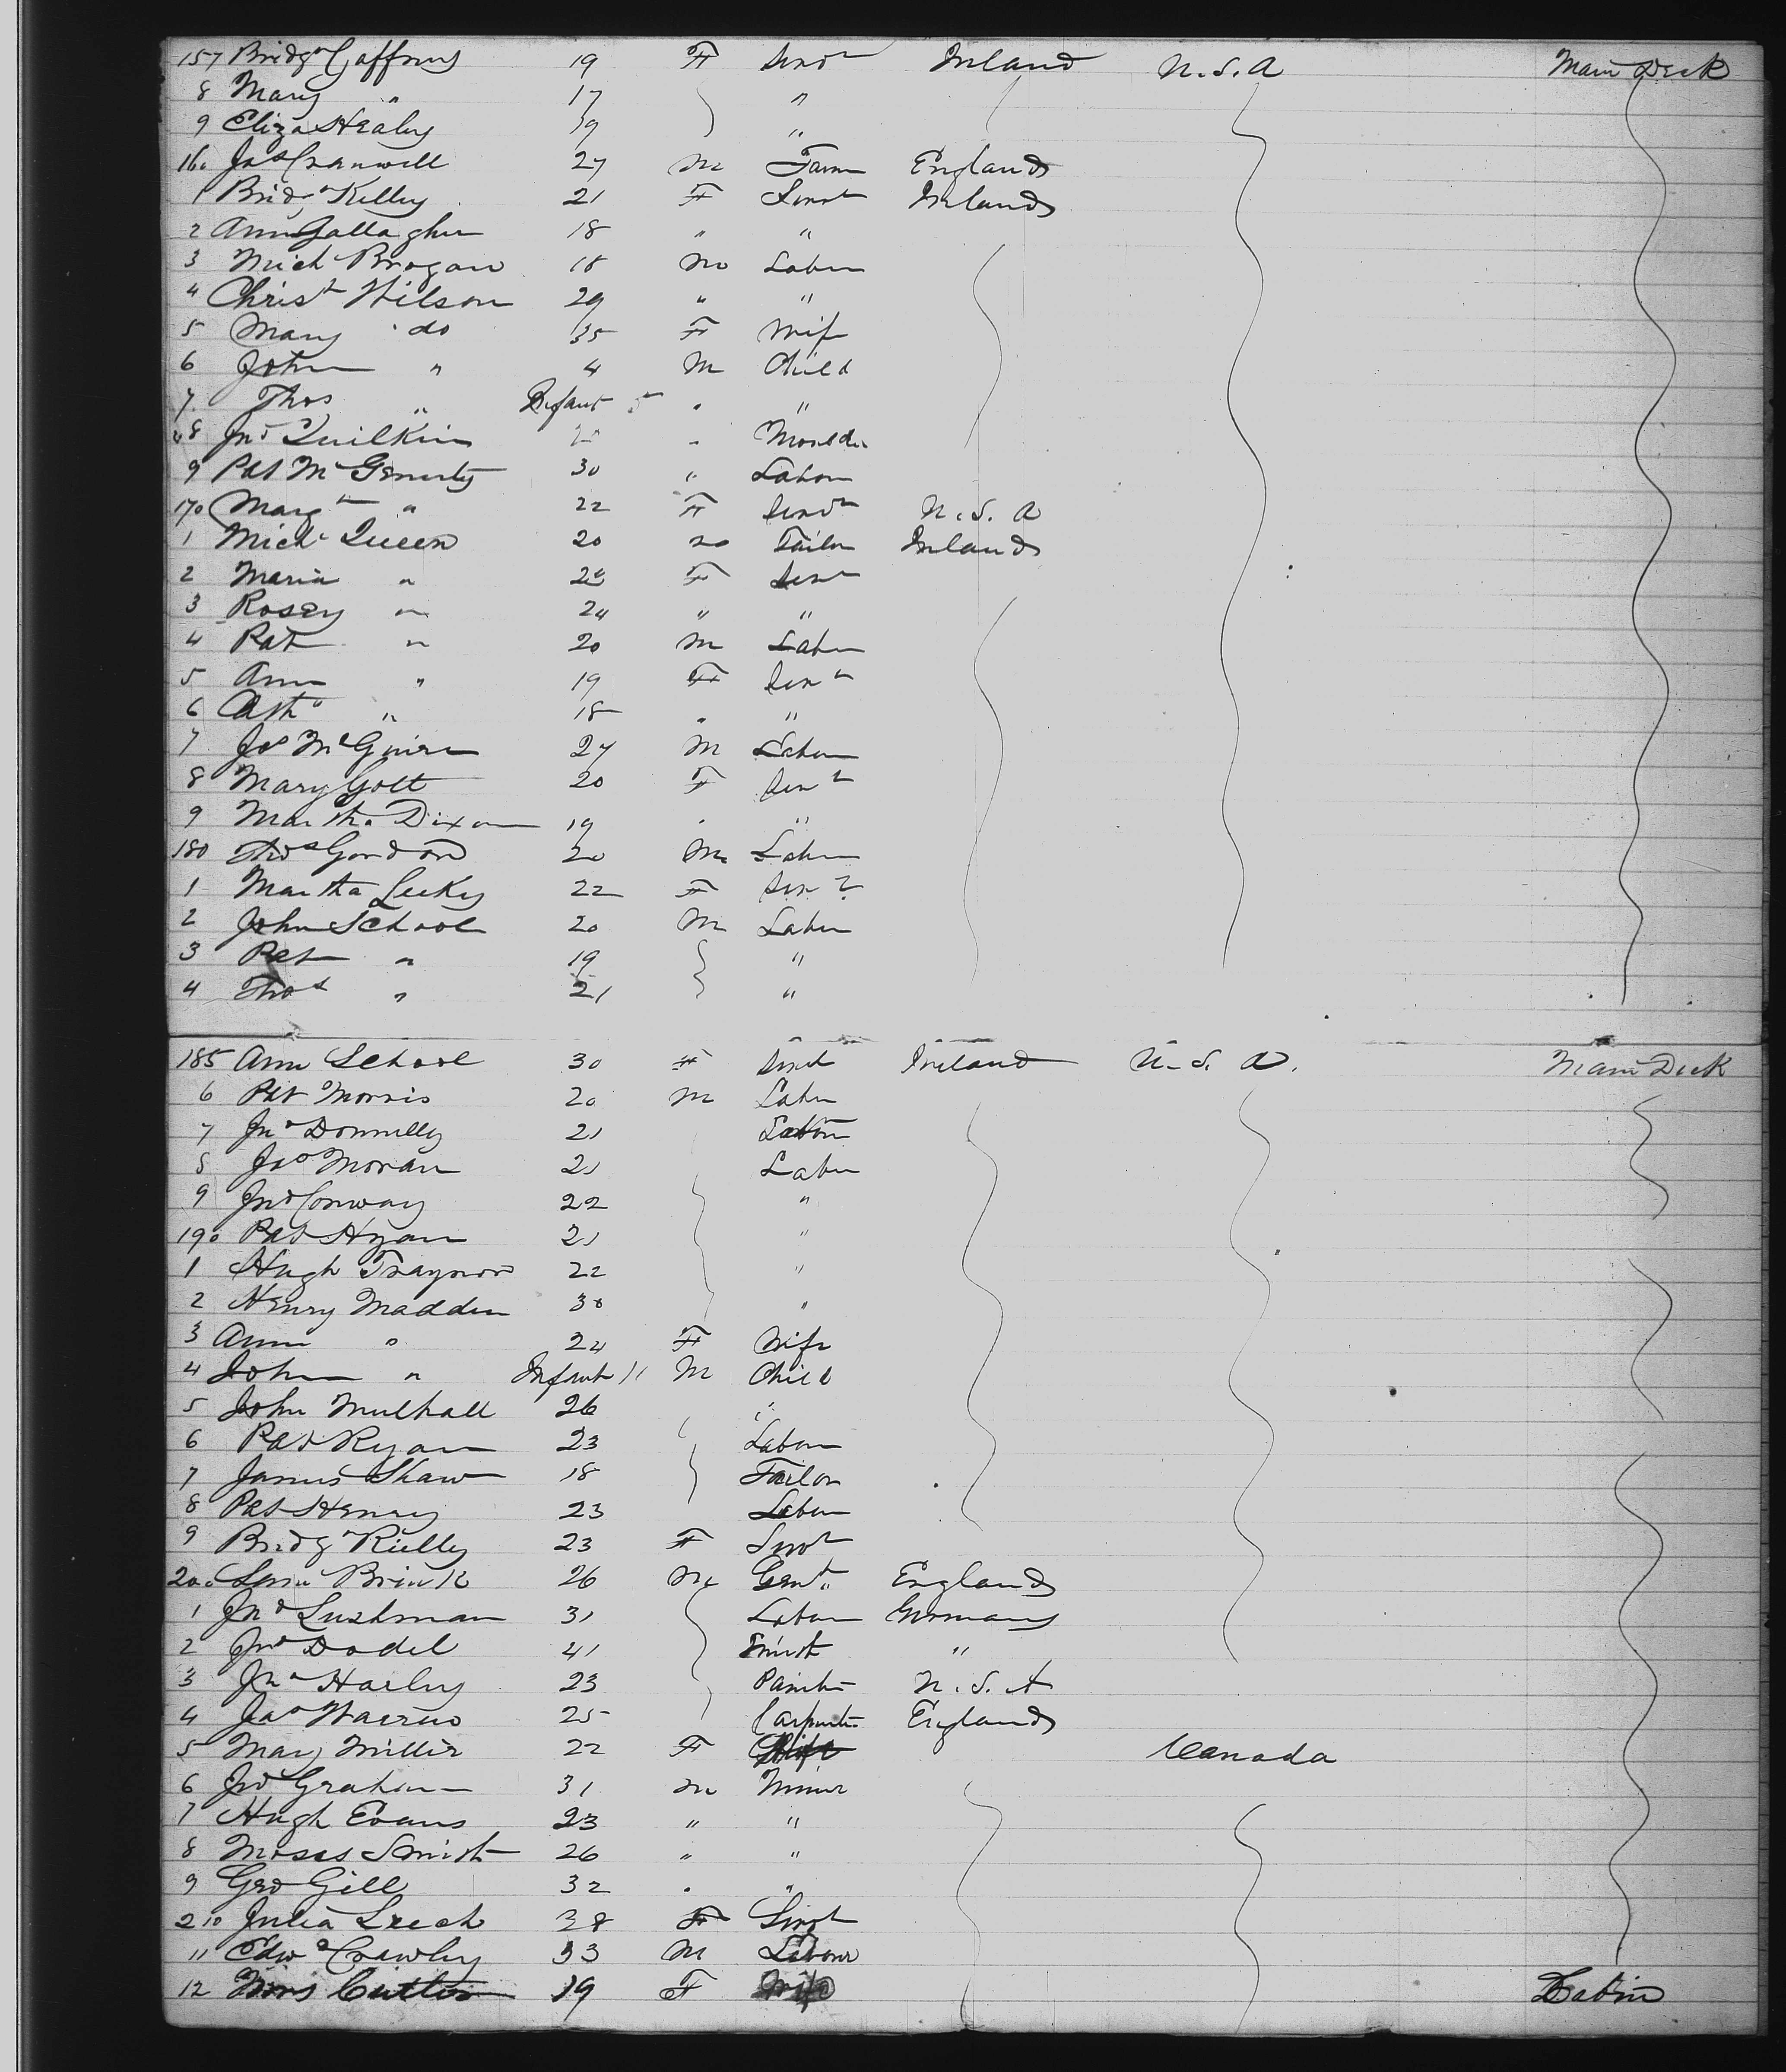 157 Bridgt Gaffney 19 F Servt Ireland U.S.A Main Deck
8 Mary " 17 "
9 Eliza Healy 19 "
160 Jas Cranwell 27 M Farm England
1 Bridgt Kelley 21 F Servt Ireland
2 Ann Gallagher 18 " "
3 Mich Brogan 18 M Labor
4 Christ Wilson 29 " "
5 Mary do 35 F Wife
6 John " 4 M Child
7 Thos " Infant " "
8 Jno Quilkin " Moulder
9 Pat McGenerty 30 " Labor
170 Margt " 22 F Servt U.S.A
1 Michl Queen 20 M Tailor Ireland
2 Maria " F Servt
3 Rosey " 24 " "
4 Pat " 20 M Labor
5 Ann " 19 F Servt
6 Cath " 18 " "
7 Jas McGuire 27 M Labor
8 Mary Golt 20 F Servt
9 Martha Dixon 19 " "
180 Thos Gordon 20 M Labor
1 Martha Leeky 22 F Servt
2 John School 20 M Labor
3 Pat " 19 "
4 Thos " 21 "
185 Ann School 30 F Servt Ireland U.S.A. Main Deck
6 Pat Morris 20 M Labor
7 Jno Donnelly 21 Labor
8 Jas Moran 21 Labor
9 Jno Conway 22 "
190 Pat Hyan 21 "
1 Hugh Traynor 22 "
2 Henry Madden 30 "
3 Ann " 24 F Wife
4 John " Infant 11 M Child
5 John Mulhall 26 "
6 Pat Ryan 23 Labor
7 James Shaw 18 Tailor
8 Pat Henry 23 Labor
9 Bridgt Reilly 23 F Servt
200 Brink 26 M Gent England
1 Jno Lushman 31 Labor Germany
2 Jno Dodel 41 Smith "
3 Jno Harley 23 Painter U.S.A
4 Jas Warren 25 Carpenter England
5 Mary Miller 22 F Wife Canada
6 Jno Graham 31 M Miner
7 Hugh Evans 23 " "
8 Moses Smith 26 " "
9 Geo Gill 32 " "
210 Julia Leech 38 F Servt
11 Edwd Crawley 33 M Labour
12 Mrs Cutler 19 F Wife Cabin